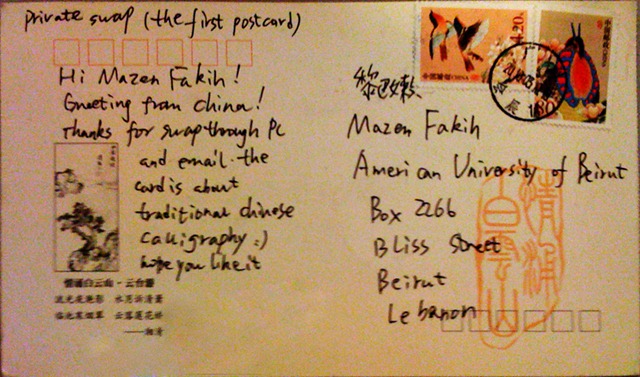 Private swap (the first postcard)
Hi Mazen Fakih!
Greeting from China!
Thanks for swap through PC
and email. the
card is about
traditional chinese
calligraphy :)
hope you like it
4.20
中国邮政 CHINA
黎巴嫩
Mazen Fakih
American University of Beirut
Box 2266
Bliss Street
Beirut
Lebanon
白雲山